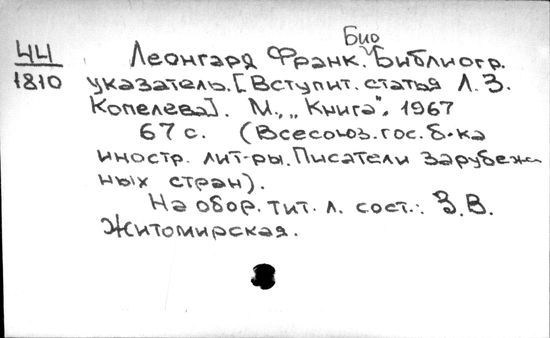 44
1810
Био
Леонгард Франк. Библиогр.
указатель. [Вступит. статья Л. З.
Копелева]. М., „Книга", 1967
67 с. (Всесоюз. гос. б-ка
иностр. лит-ры. Писатели зарубеж-
ных стран).
На обор. тит. л. сост.: З. В.
Житомирская.